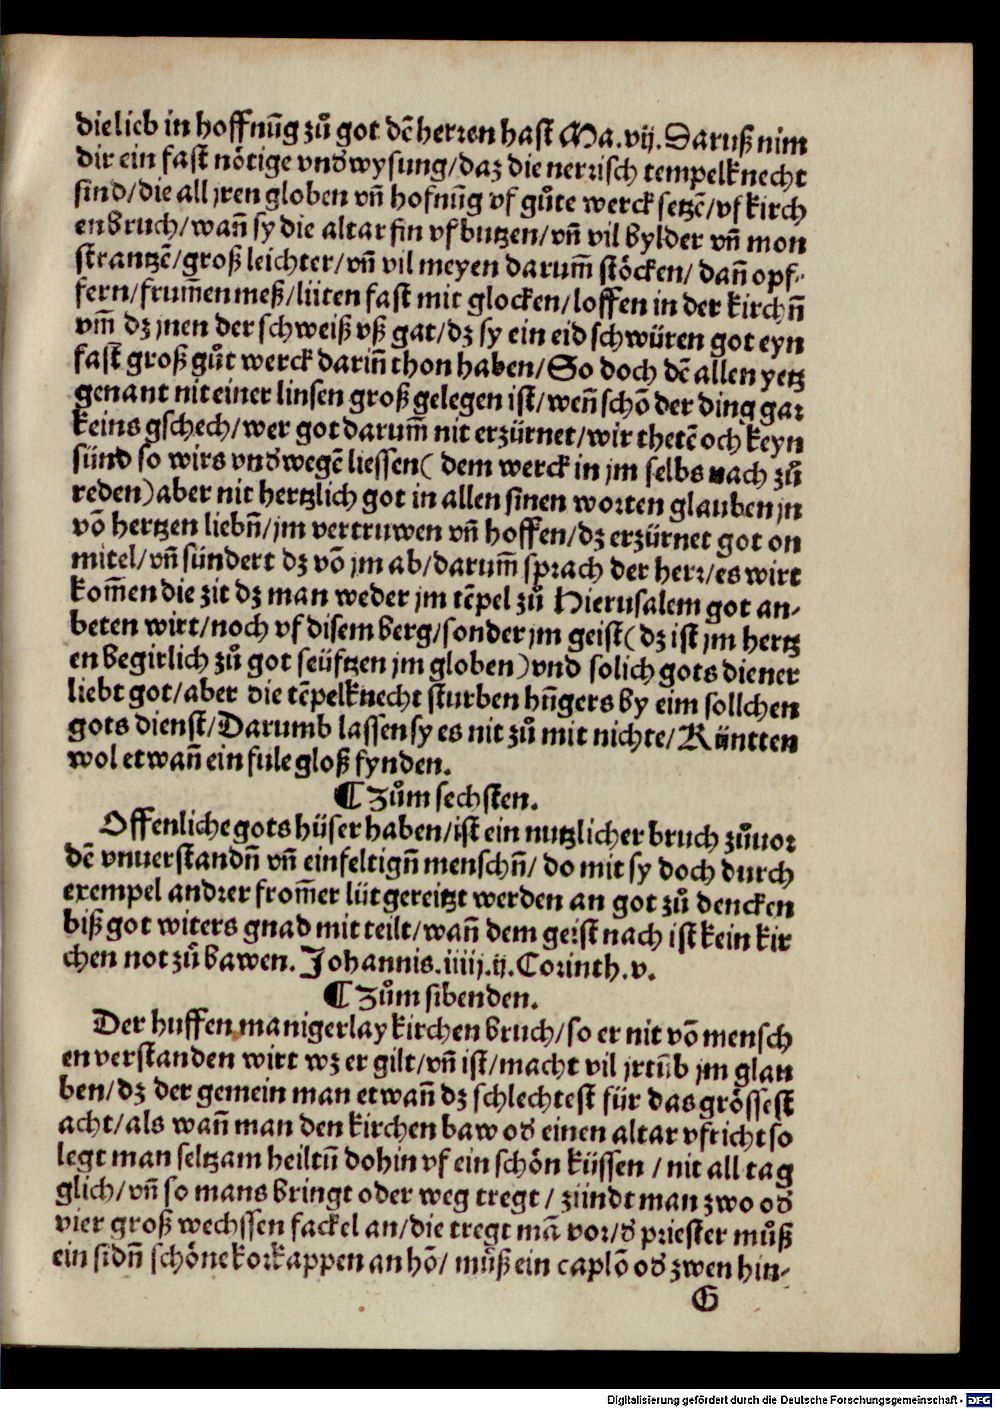 die lieb in hoffnūg zů got dē herren hast Ma.vij. Daruß nim
dir ein fast nötige vnd̕wysung/daz die nerrisch tempelknecht
sind/die all jren globen vñ hofnūg vf gůte werck setzē/vf kirch
en bruch/wañ sy die altar fin vf butzen/vñ vil bylder vñ mon
strantzē/groß leichter/vñ vil meyen darum̄ stöcken/ dañ opf-
fern/frum̄en meß/lüten fast mit glocken/loffen in der kirchñ
vm̄ dz jnen der schweiß vß gat/dz sy ein eid schwüren got eyn
fast groß gůt werck dariñ thon haben/So doch dē allen yetz
genant nit einer linsen groß gelegen ist/weñ schō der ding gar
keins gschech/wer got darum̄ nit erzürnet/wir thetē och keyn
sünd so wirs vnd̕wegē liessen( dem werck in jm selbs nach zů
reden)aber nit hertzlich got in allen sinen worten glauben jn
vō hertzen liebñ/jm vertruwen vñ hoffen/dz erzürnet got on
mitel/vñ sündert dz vō jm ab/darum̄ sprach der herr/es wirt
kom̄en die zit dz man weder jm tēpel zů Hierusalem got an-
beten wirt/noch vf disem berg/sonder jm geist(dz ist jm hertz
en begirlich zů got seüftzen jm globen)vnd solich gots diener
liebt got/aber die tēpelknecht sturben hūgers by eim sollchen
gots dienst/Darumb lassen sy es nit zů mit nichte/Küntten
wol etwañ ein fule gloß fynden.
¶ Zům sechsten.
Offenliche gots hüser haben/ist ein nutzlicher bruch zůuor
dē vnuerstandñ vñ einfeltigñ menschñ/ do mit sy doch durch
exempel andrer from̄er lüt gereitzt werden an got zů dencken
biß got witers gnad mit teilt/wañ dem geist nach ist kein kir
chen not zů bawen. Johannis.iiij.ij.Corinth.v.
¶ Zům sibenden.
Der huffen manigerlay kirchen bruch/so er nit vō mensch
en verstanden wirt wz er gilt/vñ ist/macht vil jrtūb jm glau
ben/dz der gemein man etwañ dz schlechtest für das grössest
acht/als wañ man den kirchen baw od̕ einen altar vfricht so
legt man seltzam heiltū dohin vf ein schön küssen / nit all tag
glich/vñ so mans bringt oder weg tregt / zündt man zwo od̕
vier groß wechssen fackel an/die tregt mā vor/d̕ priester můß
ein sidñ schöne korkappen an hō/ můß ein caplō od̕ zwen hin-
G
Digitalisierung gefördert durch die Deutsche Forschungsgemeinschaft - DFG